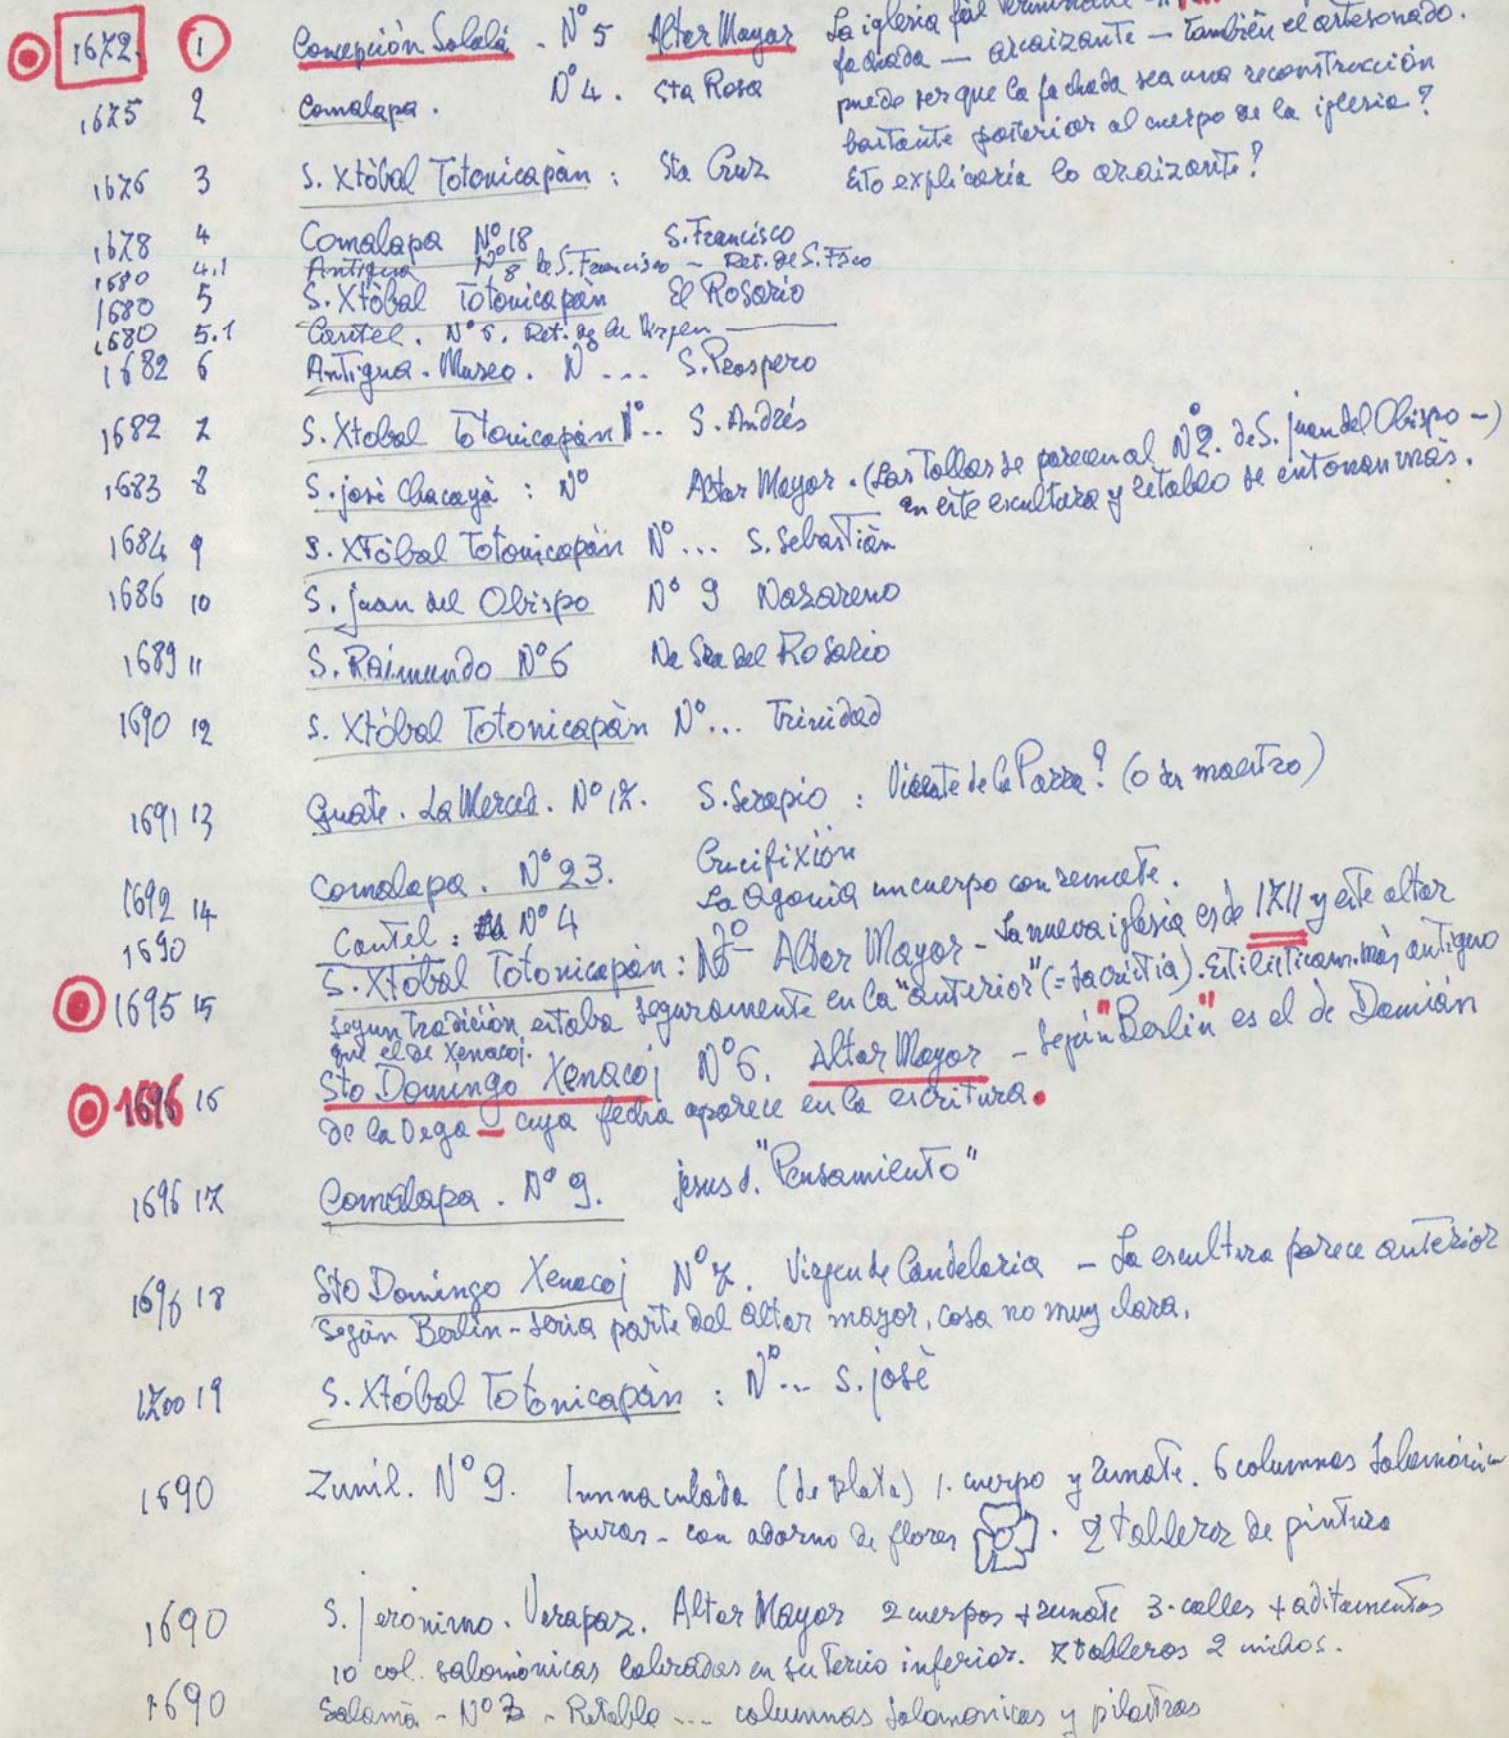 La iglesia fué
1672. 1 Concepción Sololá - Nº 5 Altar Mayor fachada — arcaizante — también el artesonado.
1675 2 Comalapa. Nº 4. Sta Rosa puede ser que la fachada sea una reconstrucción
bastante posterior al cuerpo de la iglesia?
1676 3 S. Xtòbal Totonicapàn : Sta Cruz Esto explicaría lo arcaizante?
1678 4 Comalapa Nº 18 S. Francisco
1680 4.1 Antigua Nº 8 de S. Francisco — Ret. de S. Fsco
1680 5 S. Xtòbal Totonicapàn El Rosario
1680 5.1 Cantel. Nº 6. Ret. de la Virgen
1682 6 Antigua. Museo. Nº ... S. Prospero
1682 7 S. Xtobal Totonicapàn Nº.. S. Andrés
1683 8 S. josè Chacayà : Nº Altar Mayor. (Las Tallas se parecen al Nº 2. de S. juan del Obispo —)
en este escultura y retablo se entonan màs.
1684 9 S. Xtòbal Totonicapàn Nº ... S. Sebastiàn
1686 10 S. juan del Obispo Nº 9 Nazareno
1689 11 S. Raimundo Nº 6 Na Sra del Rosario
1690 12 S. Xtòbal Totonicapàn Nº... Trinidad
1691 13 Guate. La Merced. Nº 17. S. Serapio : Vicente de la Parra? (o su maestro)
1692 14 Comalapa. Nº 23. Crucifixión
1690 Cantel : Nº 4 La Agonia un cuerpo con remate.
1695 15 S. Xtòbal Totonicapàn : Nº Altar Mayor - La nueva iglesia es de 1711 y este altar
segun tradición estaba seguramente en la "anterior" (= sacristia). Estilisticam. màs antiguo
que el de Xenacoj.
1696 16 Sto Domingo Xenacoj Nº 6. Altar Mayor - Según "Berlin" es el de Damián
de la Vega — cuya fecha aparece en la escritura.
1696 17 Comalapa. Nº 9. jesus d. "Pensamiento"
1696 18 Sto Domingo Xenacoj Nº 7. Virgen de Candelaria - La escultura parece anterior
Según Berlin - seria parte del altar mayor, cosa no muy clara.
1700 19 S. Xtòbal Totonicapàn : Nº... S. josè
1690 Zunil. Nº 9. Inmaculada (de Plata) 1. cuerpo y remate. 6 columnas Salomónicas
puras - con adorno de flores . 2 tableros de pintura
1690 S. jerónimo. Verapaz. Altar Mayor 2 cuerpos + remate 3. calles + aditamentos
10 col. salomónicas labradas en su Tercio inferior. 7 tableros 2 nichos.
1690 Salamà - Nº 3 - Retablo ... columnas Salomonicas y pilastras